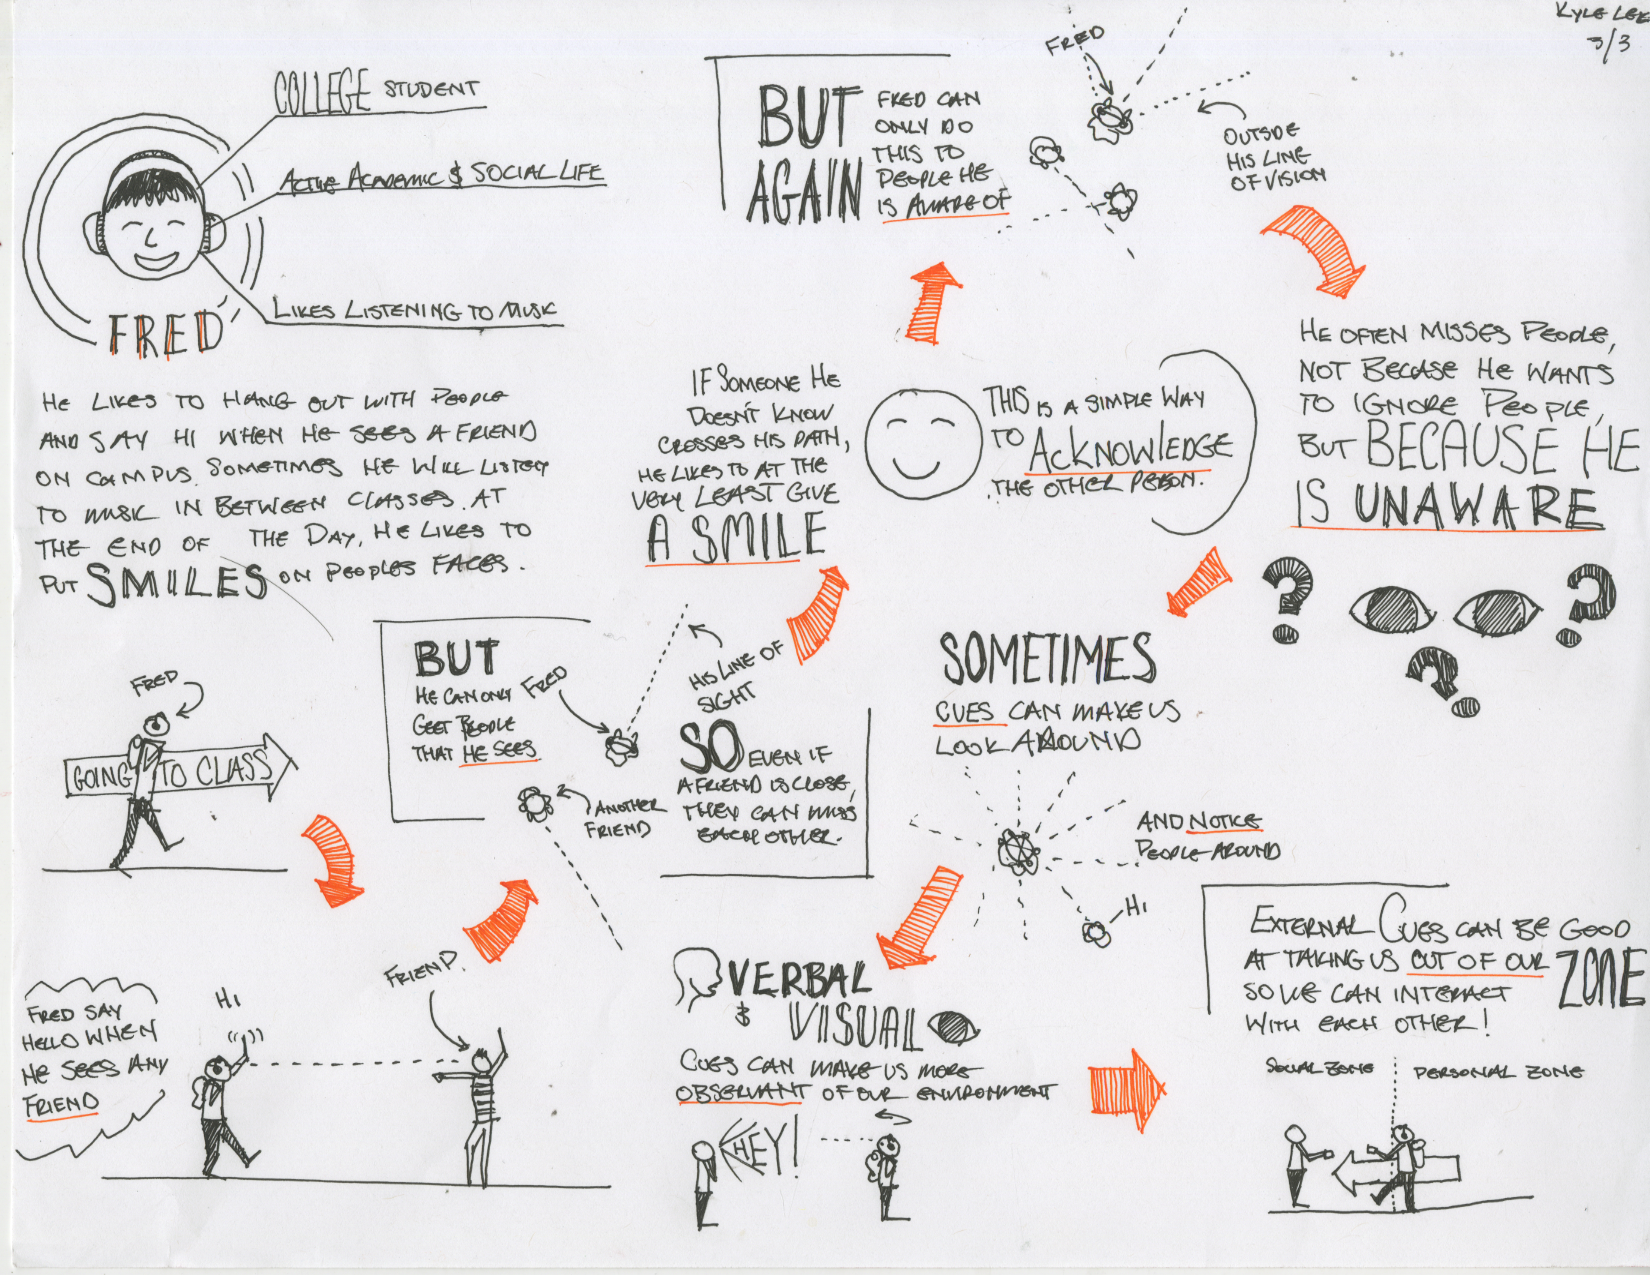 KYLE LEE
3/3
COLLEGE STUDENT
ACTIVE ACADEMIC & SOCIAL LIFE
LIKES LISTENING TO MUSIC
FRED
HE LIKES TO HANG OUT WITH PEOPLE
AND SAY HI WHEN HE SEES A FRIEND
ON CAMPUS. SOMETIMES HE WILL LISTEN
TO MUSIC IN BETWEEN CLASSES. AT
THE END OF THE DAY, HE LIKES TO
PUT SMILES ON PEOPLES FACES.
FRED
GOING TO CLASS
FRED SAY
HELLO WHEN
HE SEES ANY
FRIEND
HI
FRIEND.
BUT
HE CAN ONLY
GEET PEOPLE
THAT HE SEES.
FRED
HIS LINE OF
SIGHT
ANOTHER
FRIEND
SO EVEN IF
A FRIEND IS CLOSE,
THEY CAN MISS
EACH OTHER.
IF SOMEONE HE
DOESN'T KNOW
CROSSES HIS PATH,
HE LIKES TO AT THE
VERY LEAST GIVE
A SMILE
THIS IS A SIMPLE WAY
TO ACKNOWLEDGE
THE OTHER PERSON.
BUT
AGAIN
FRED CAN
ONLY DO
THIS TO
PEOPLE HE
IS AWARE OF
FRED
OUTSIDE
HIS LINE
OF VISION
HE OFTEN MISSES PEOPLE,
NOT BECASE HE WANTS
TO IGNORE PEOPLE,
BUT BECAUSE HE
IS UNAWARE
? ?
?
SOMETIMES
CUES CAN MAKE US
LOOK AROUND
AND NOTICE
PEOPLE AROUND
HI
VERBAL
& VISUAL
CUES CAN MAKE US MORE
OBSERVANT OF OUR ENVIRONMENT
HEY!
EXTERNAL CUES CAN BE GOOD
AT TAKING US OUT OF OUR ZONE
SO WE CAN INTERACT
WITH EACH OTHER!
SOCIAL ZONE
PERSONAL ZONE